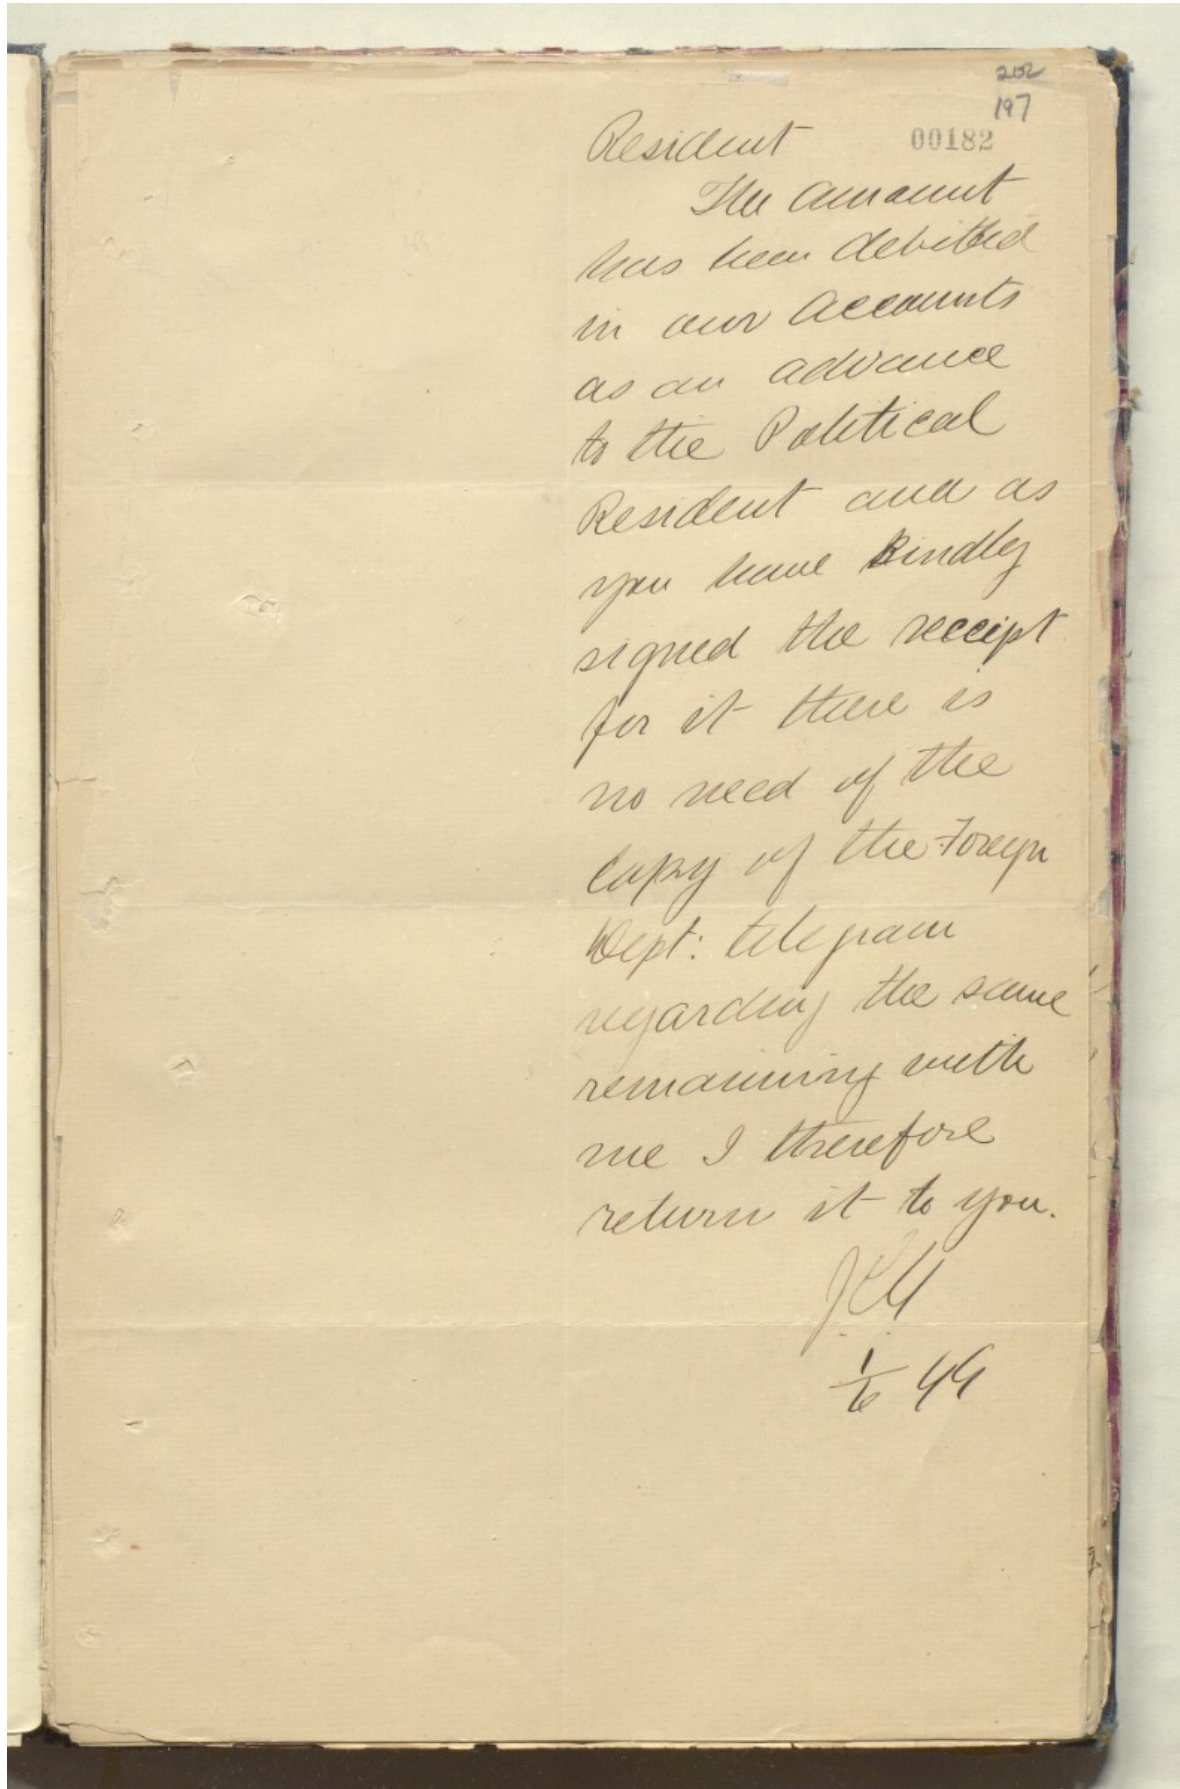 202
197
00182
Resident
The amount
has been debitted
in our accounts
as an advance
to the Political
Resident and as
you have kindly
signed the receipt
for it there is
no need of the
copy of the Foreign
Dept: telegram
regarding the same
remaining with
me I therefore
return it to you.
1/6